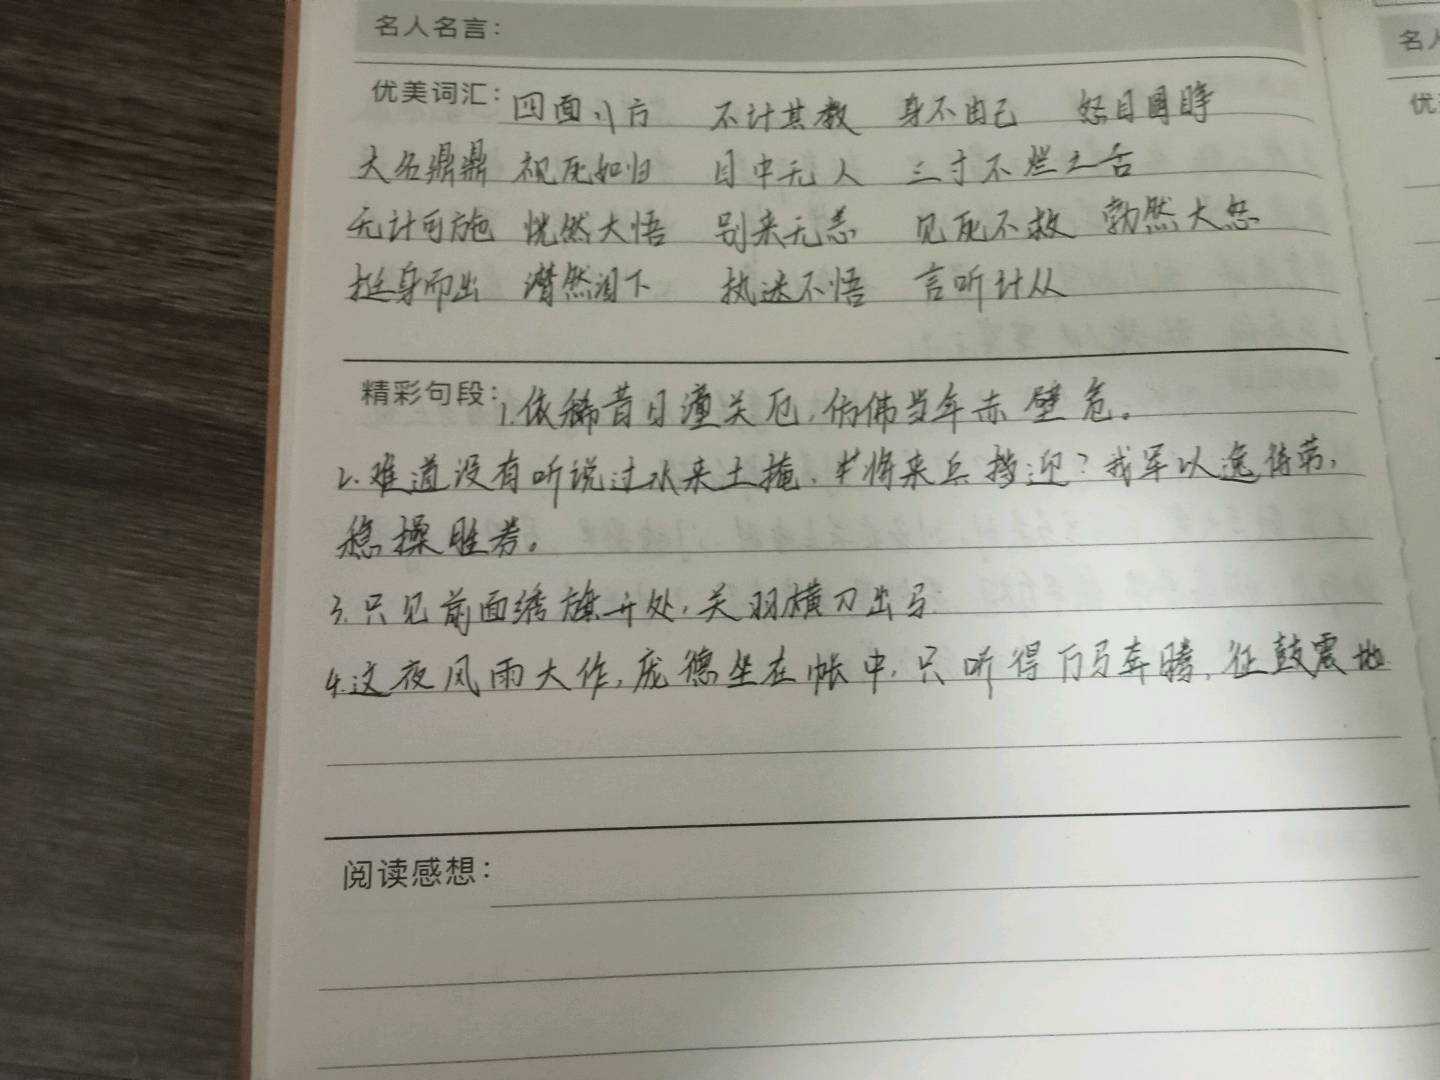 名人名言：
优美词汇：四面八方 不计其数 身不由己 怒目圆睁
大名鼎鼎 视死如归 目中无人 三寸不烂之舌
无计可施 恍然大悟 别来无恙 见死不救 勃然大怒
挺身而出 潸然泪下 执迷不悟 言听计从
精彩句段：1.依稀昔日潼关厄，仿佛当年赤壁危。
2.难道没有听说过水来土掩，将来兵挡迎？我军以逸待劳，
稳操胜券。
3.只见前面绣旗开处，关羽横刀出马
4.这夜风雨大作，庞德坐在帐中，只听得万马奔腾，征鼓震地
阅读感想：
名人
优